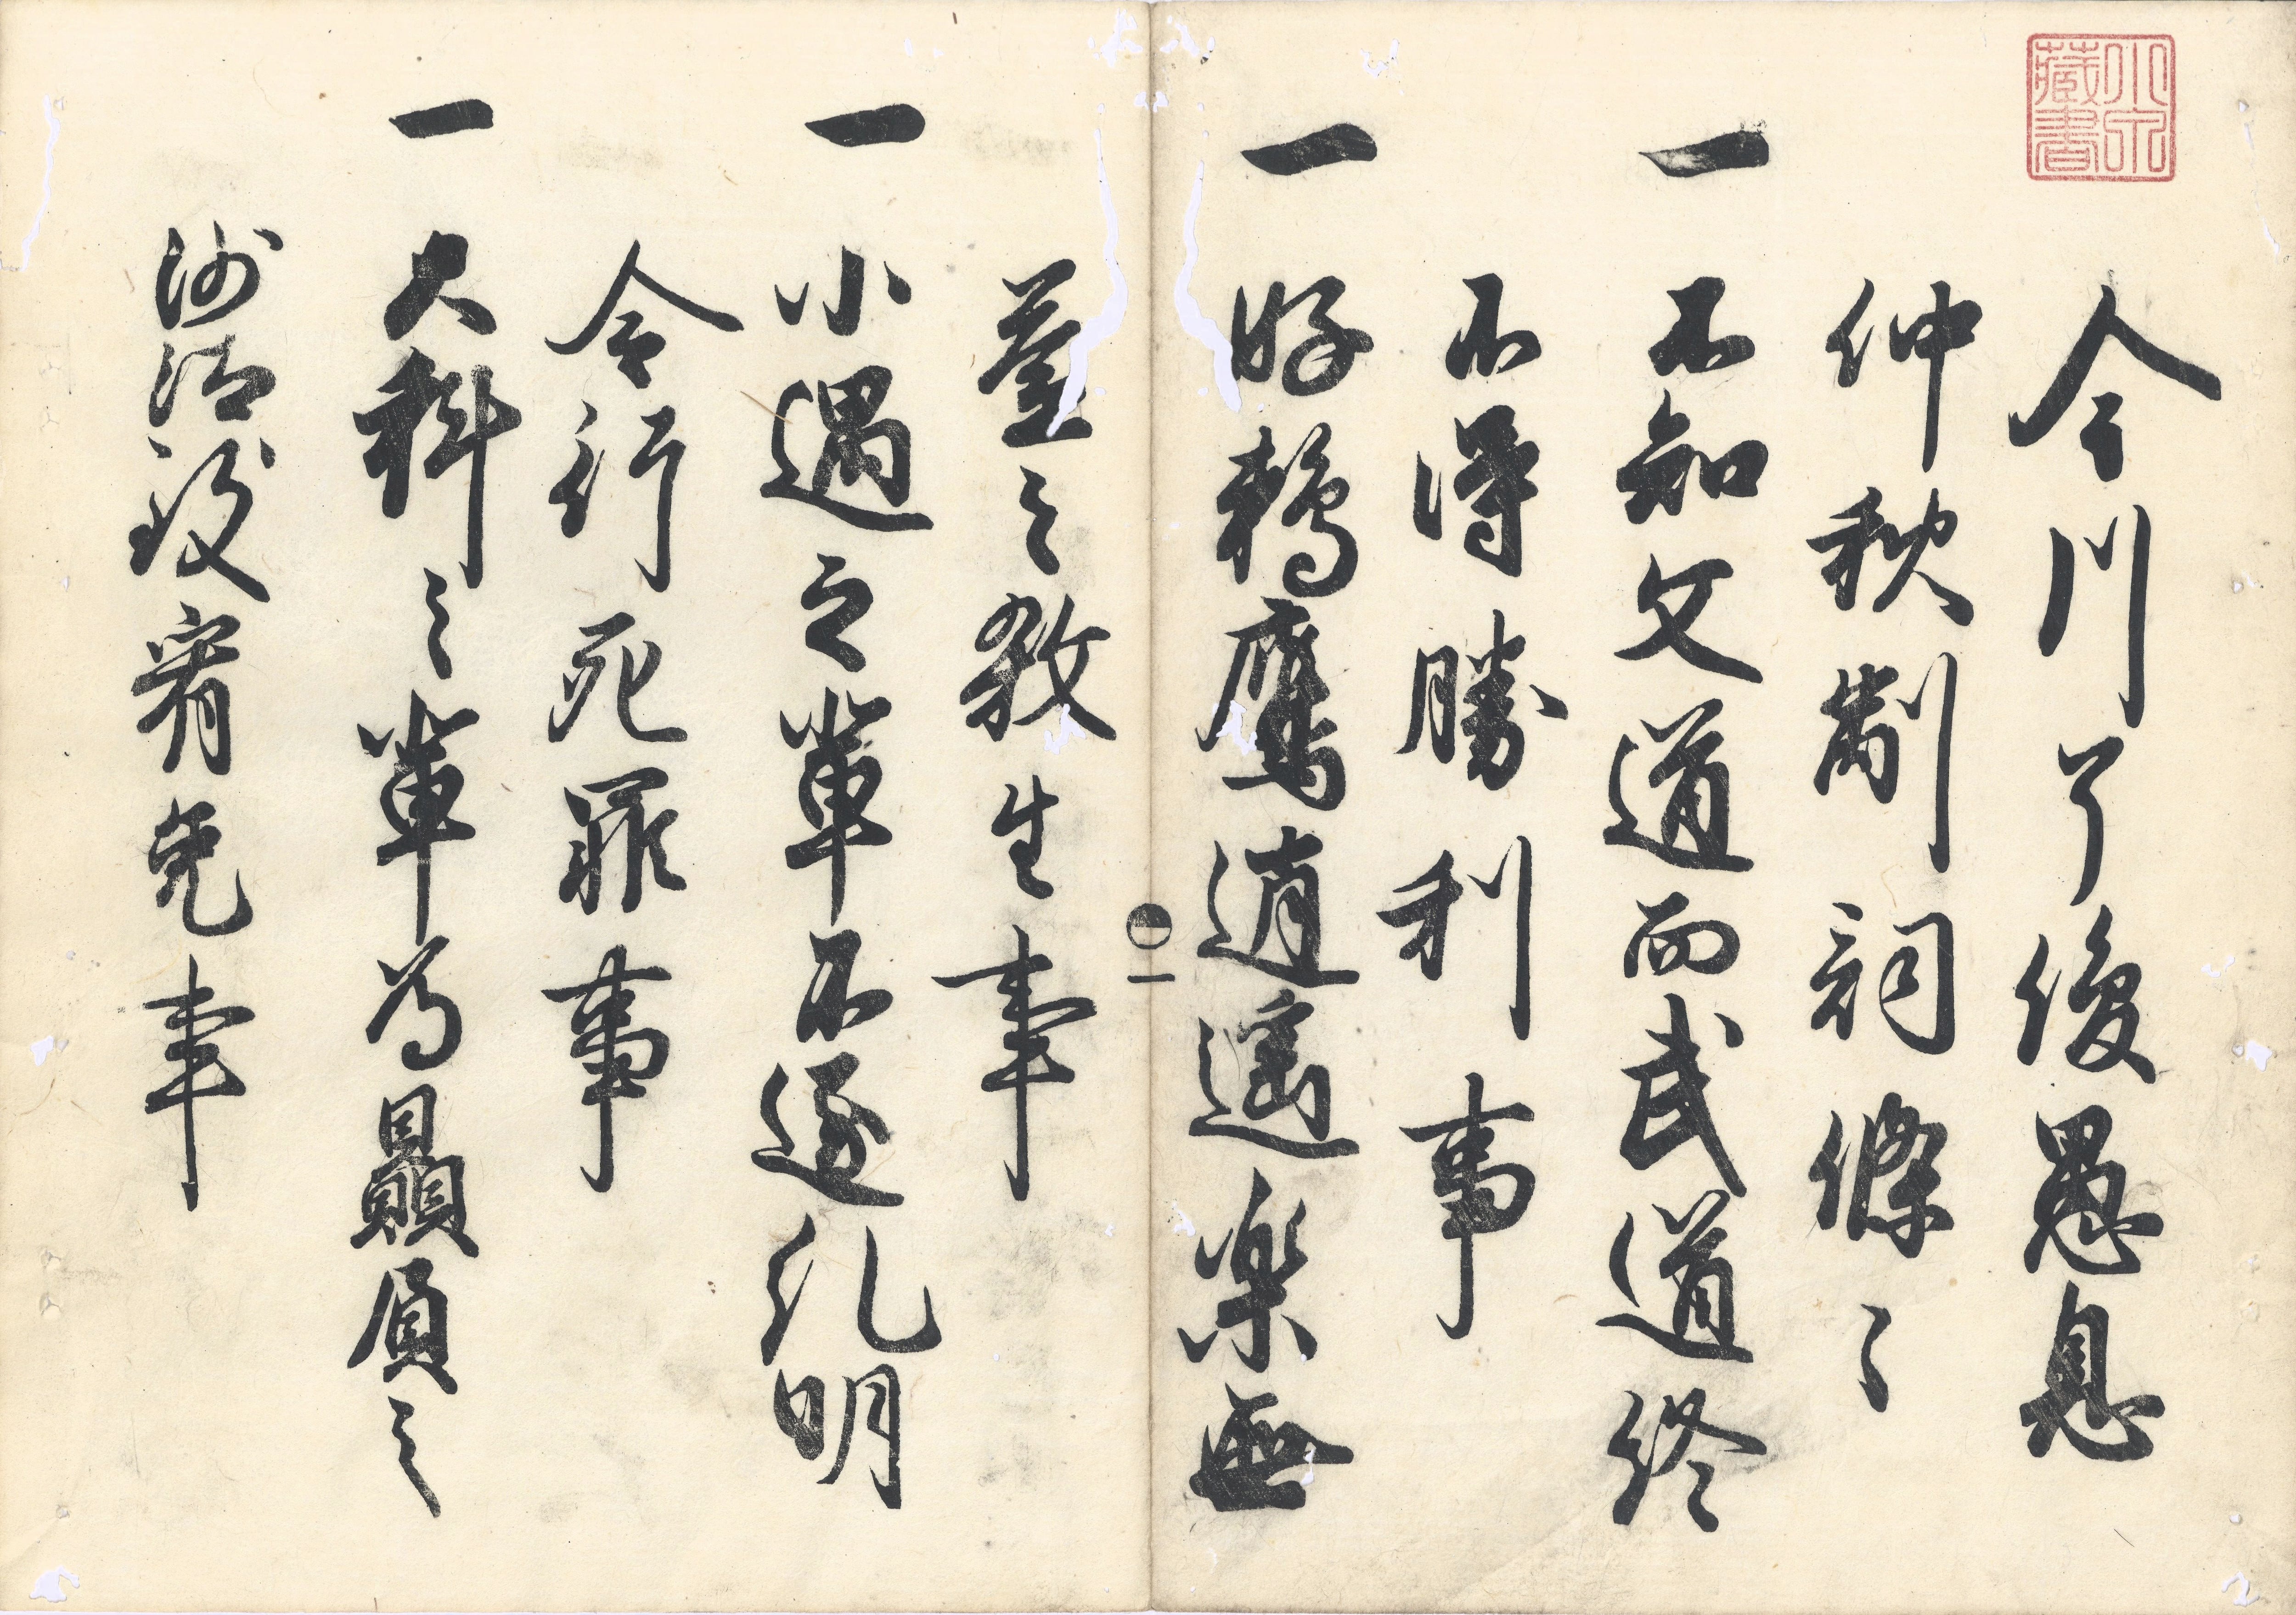 小泉藏書
今川了俊愚息
仲秋制詞條々
一 不知文道而武道終
不得勝利事
一 好鵜鷹逍遥楽無
益之殺生事
一 小過之輩不遂糺明
令行死罪事
一 大科之輩為贔屓之
沙汰致宥免事
一